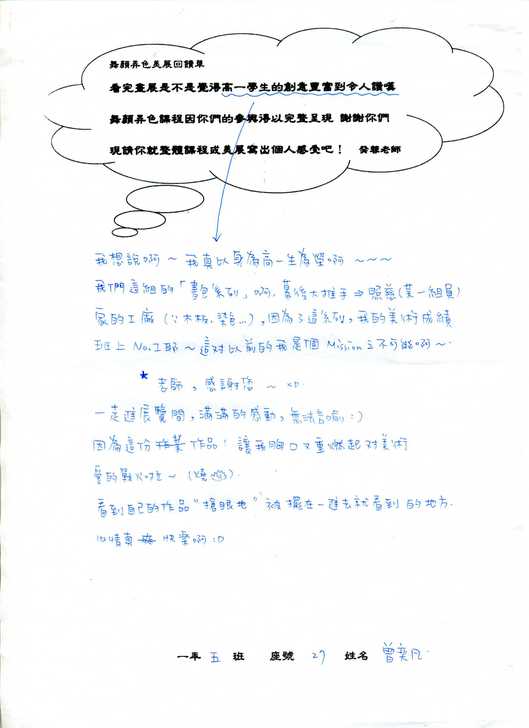 舞顏弄色美展回饋單
看完畫展是不是覺得高一學生的創意豐富到令人讚嘆
舞顏弄色課程因你們的參與得以完整呈現 謝謝你們
現請你就整體課程或美展寫出個人感受吧！ 老師
我想說啊～我真以身為高一生為榮啊～～～
我們這組的「書包系列」啊，幕後大推手⇒照慈(某一組員)
家的工廠(∵木板、染色…)，因為了這系列，我的美術成績
班上No.1耶～這對以前的我是個Mission立不可能啊～
★ 老師，感謝您～ xD
一走進展覽間，滿滿的感動，無法言喻:)
因為這份作品！讓我胸口又重燃起對美術
愛的戰火哇～(燒)
看到自己的作品"搶眼地"被擺在一進去就看到的地方.
心情真快樂啊:D
一年 五 班 座號 27 姓名 曾奕凡